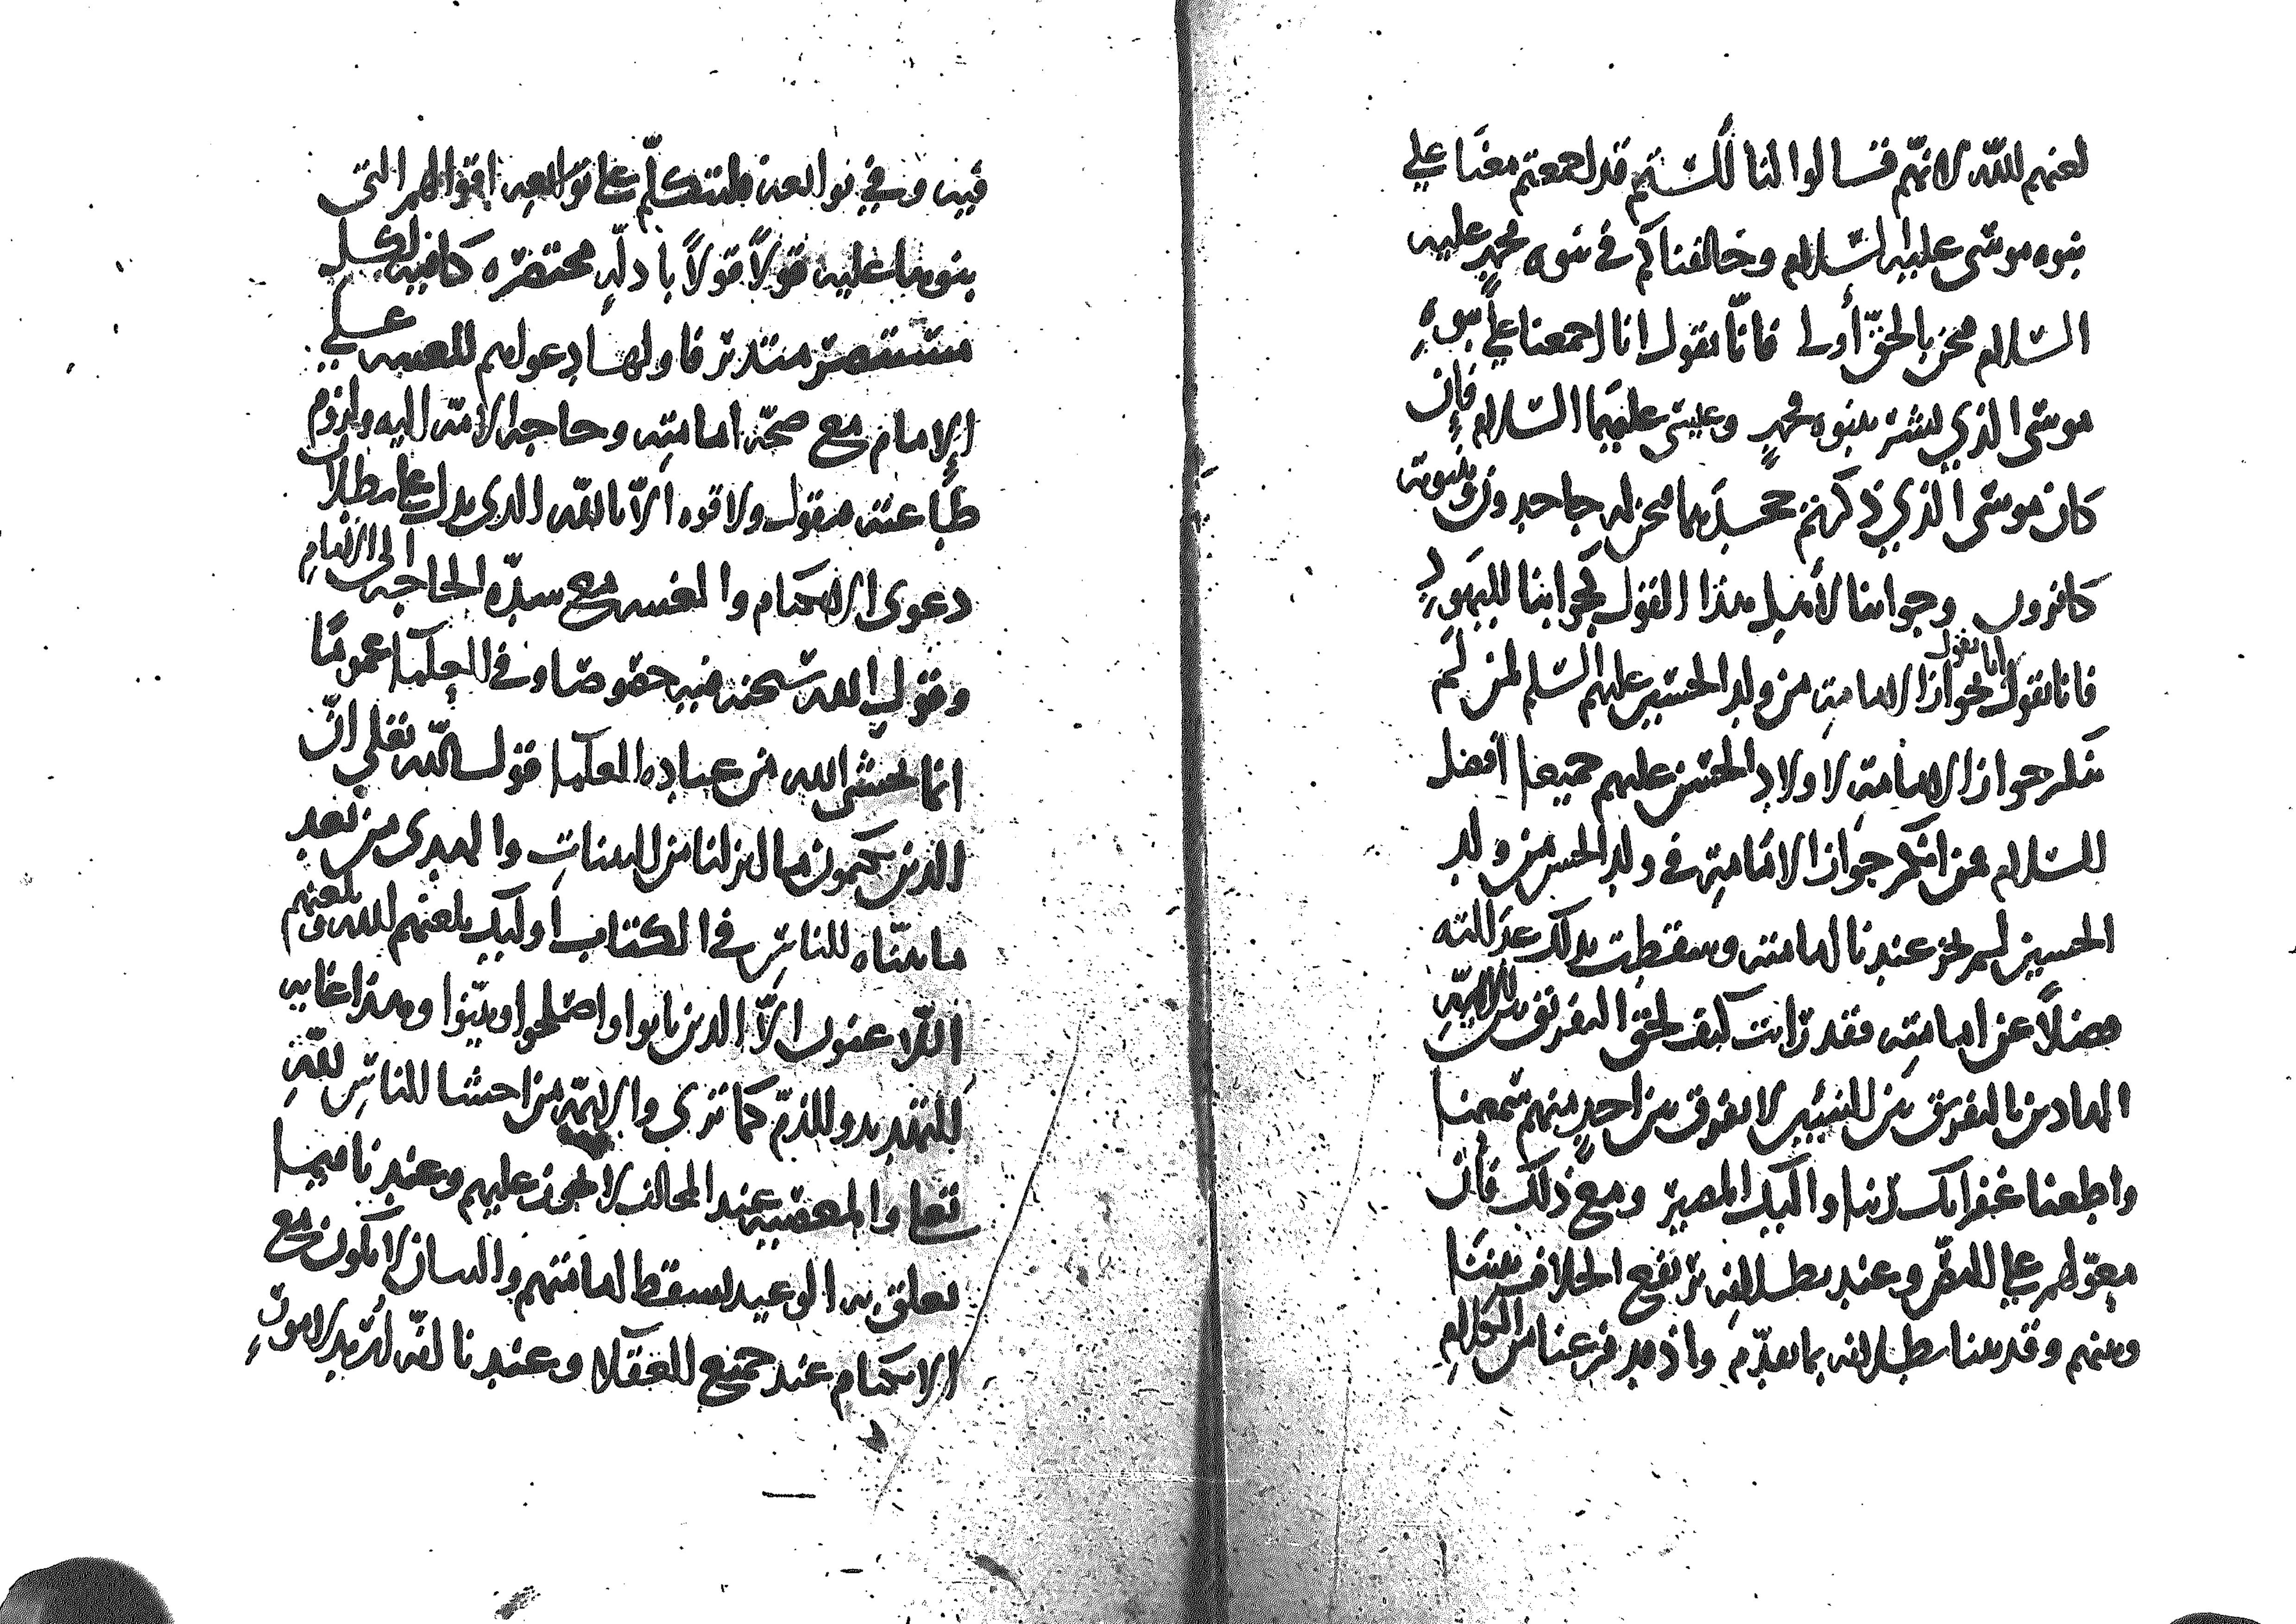 لعنهم الله لانهم قالوا لنا ألستم قد اجمعتم معنا علي
نبوه موسى عليه السلام وخالفناكم في نبوه محمد عليه
السلام فنحن بالحق أولى فانا نقول انا اجمعنا علي نبوة
موسى الذي بشر بنبوه محمد وعيسى عليهما السلام فإن
كان موسى الذي ذكرتم جحدهما فنحن له جاحدون وبنبوته
كافرون وجوابنا لأهل هذا القول كجوابنا لليهود
فانا نقول انا نقول بجواز الامامة من ولد الحسين عليهم السلم لمن لم
ينكر جواز الامامة لاولاد الحسن عليهم جميعا افضل
السلام فمن انكر جواز الامامة في ولد الحسن من ولد
الحسين لم تجز عندنا امامته وسقطت بذلك عدالته
فضلاً عن امامته فقد رايت كيف لحق التفريق بين الايمة
الهادين بالتفريق بين النبيين لا نفرق بين احد منهم سمعنا
واطعنا غفرانك ربنا واليك المصير ومع ذلك فان
معولهم على النص وعند بطلانه يرتفع الخلاف بيننا
وبينهم وقد بينا بطلانه بما تقدم واذ قد فرغنا من الكلام
فيه وفي توابعه فلنتكلم على توابعه اقوالهم التي
بنوها عليه قولاً قولاً بادلة مختصره كافيه لكل
مستبصر متدبر فاولها دعواهم الغيبه علي
الإمام مع صحة امامته وحاجه الامة اليه ولزوم
طاعته فنقول ولا قوه الا بالله الذي يدل على بطلان
دعوى الاكتتام والغيبه مع شدة الحاجه الى الإمام
وقول الله سبحنه فيه خصوصا وفي العلما عموما
انما يخشى الله من عباده العلما قول الله تعلى ان
الذين يكتمون ما انزلنا من البينات والهدى من بعد
ما بيناه للناس في الكتاب أوليك يلعنهم الله ويلعنهم
اللاعنون الا الذين تابوا واصلحوا وبينوا وهذا غايه
التهديد والذم كما ترى والايمة من اخشا الناس لله
تعا والمعصيه عند المخالف لا تجوز عليهم وعندنا فيما
تعلق به الوعيد يسقط امامتهم والبيان لا يكون مع
الاكتتام عند جميع العقلا وعندنا انه لابد لامور